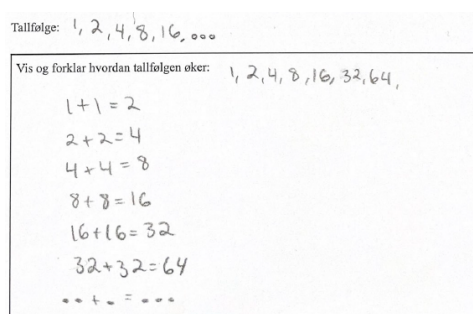 Tallfølge: 1, 2, 4, 8, 16, ...
Vis og forklar hvordan tallfølgen øker: 1, 2, 4, 8, 16, 32, 64,
1+1=2
2+2=4
4+4=8
8+8=16
16+16=32
32+32=64
..+.=...